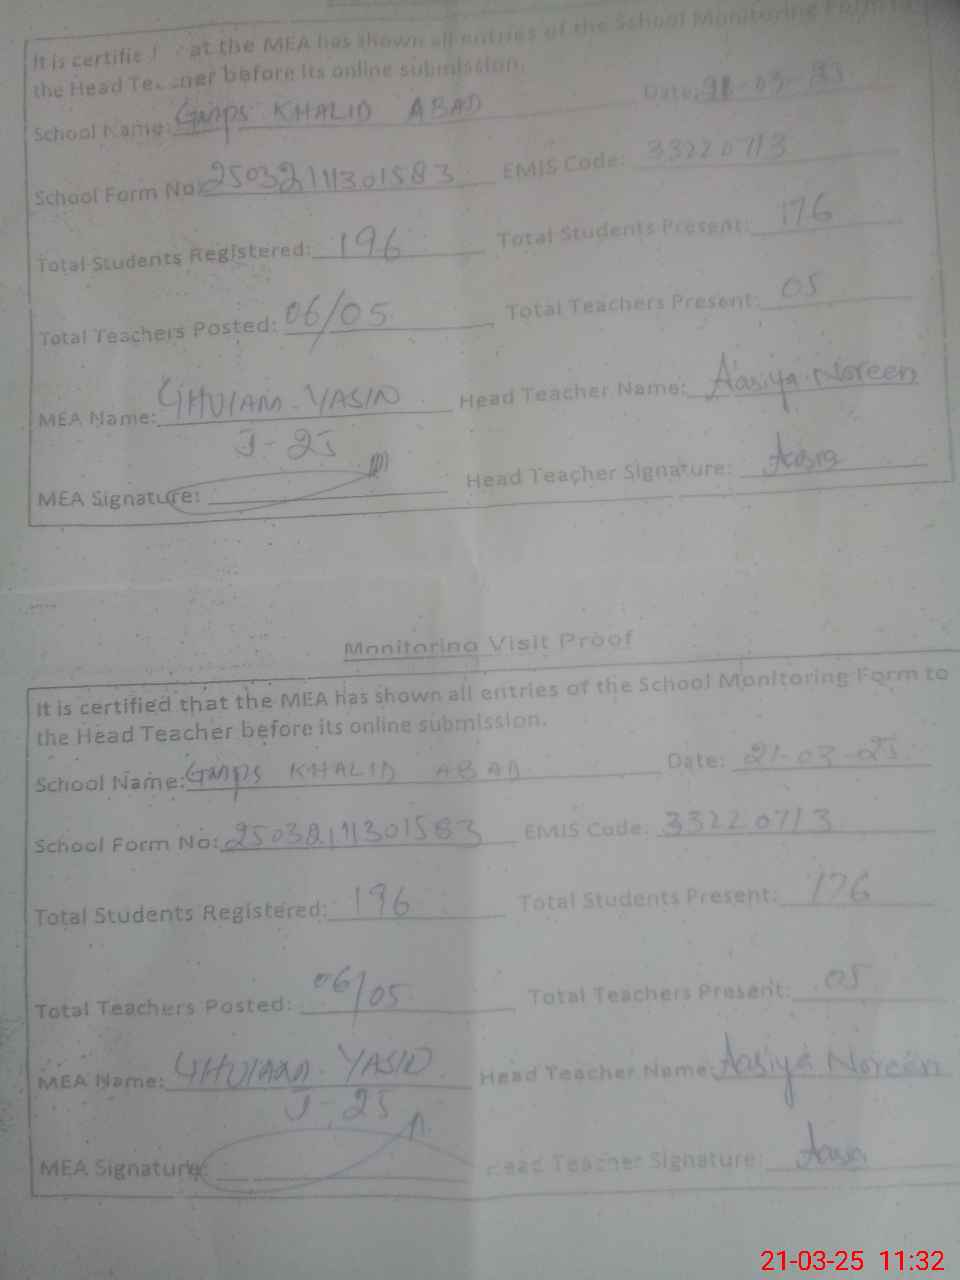 It is certified at the MEA has shown all entries of the School Monitoring Form to
the Head Teacher before its online submission.
School Name: Gmps KHALID ABAD Date:
School Form No: 25032111301583 EMIS Code: 33220713
Total Students Registered: 196 Total Students Present: 176
Total Teachers Posted: 06/05 Total Teachers Present: 05
MEA Name: GHULAM YASIN Head Teacher Name: Aasiya Noreen
J-25
MEA Signature: Head Teacher Signature: Aasia
Monitoring Visit Proof
It is certified that the MEA has shown all entries of the School Monitoring Form to
the Head Teacher before its online submission.
School Name: Gmps KHALID ABAD Date: 21-03-25
School Form No: 25032111301583 EMIS Code: 33220713
Total Students Registered: 196 Total Students Present: 176
Total Teachers Posted: 06/05 Total Teachers Present: 05
MEA Name: GHULAM YASIN Head Teacher Name: Aasiya Noreen
J-25
MEA Signature: Head Teacher Signature:
21-03-25 11:32